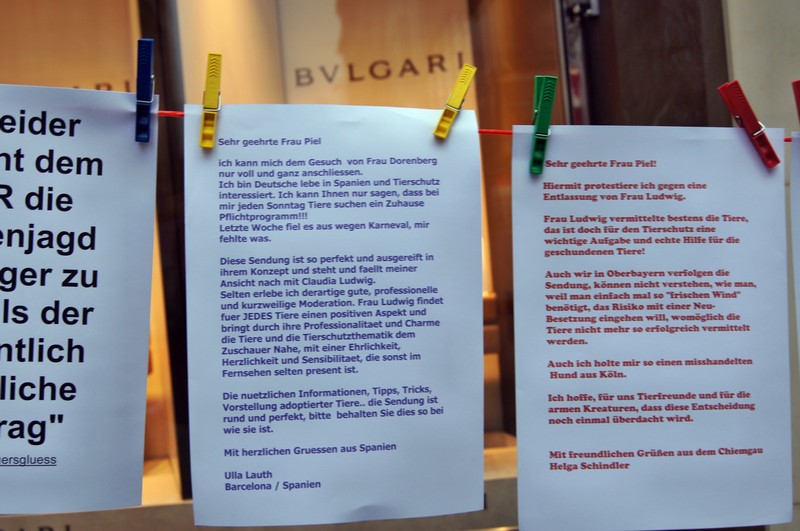 BVLGARI
eider
nt dem
R die
enjagd
ger zu
ls der
ntlich
liche
rag"
ersgluess
Sehr geehrte Frau Piel
ich kann mich dem Gesuch von Frau Dorenberg
nur voll und ganz anschliessen.
Ich bin Deutsche lebe in Spanien und Tierschutz
interessiert. Ich kann Ihnen nur sagen, dass bei
mir jeden Sonntag Tiere suchen ein Zuhause
Pflichtprogramm!!!
Letzte Woche fiel es aus wegen Karneval, mir
fehlte was.
Diese Sendung ist so perfekt und ausgereift in
ihrem Konzept und steht und faellt meiner
Ansicht nach mit Claudia Ludwig.
Selten erlebe ich derartige gute, professionelle
und kurzweilige Moderation. Frau Ludwig findet
fuer JEDES Tiere einen positiven Aspekt und
bringt durch ihre Professionalitaet und Charme
die Tiere und die Tierschutzthematik dem
Zuschauer Nahe, mit einer Ehrlichkeit,
Herzlichkeit und Sensibilitaet, die sonst im
Fernsehen selten present ist.
Die nuetzlichen Informationen, Tipps, Tricks,
Vorstellung adoptierter Tiere.. die Sendung ist
rund und perfekt, bitte behalten Sie dies so bei
wie sie ist.
Mit herzlichen Gruessen aus Spanien
Ulla Lauth
Barcelona / Spanien
Sehr geehrte Frau Piel!
Hiermit protestiere ich gegen eine
Entlassung von Frau Ludwig.
Frau Ludwig vermittelte bestens die Tiere,
das ist doch für den Tierschutz eine
wichtige Aufgabe und echte Hilfe für die
geschundenen Tiere!
Auch wir in Oberbayern verfolgen die
Sendung, können nicht verstehen, wie man,
weil man einfach mal so "frischen Wind"
benötigt, das Risiko mit einer Neu-
Besetzung eingehen will, womöglich die
Tiere nicht mehr so erfolgreich vermittelt
werden.
Auch ich holte mir so einen misshandelten
Hund aus Köln.
Ich hoffe, für uns Tierfreunde und für die
armen Kreaturen, dass diese Entscheidung
noch einmal überdacht wird.
Mit freundlichen Grüßen aus dem Chiemgau
Helga Schindler